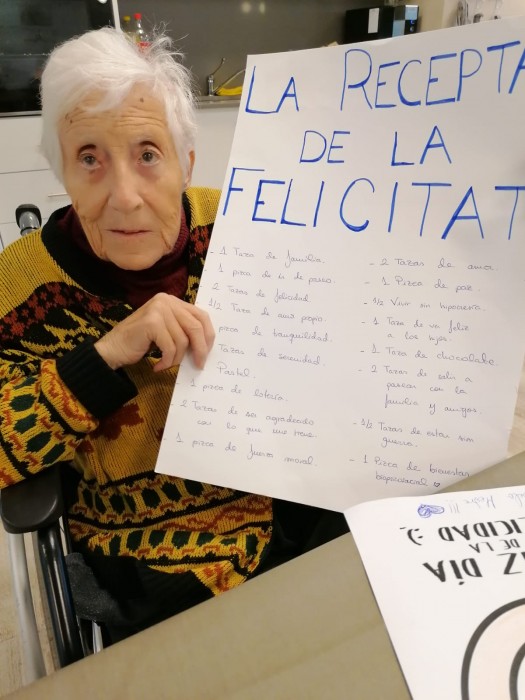 LA RECEPTA
DE LA
FELICITAT
- 1 Taza de familia.
1 pizca de ir de paseo.
2 Tazas de felicidad
1/2 Taza de amor propio.
pizca de tranquilidad.
Tazas de serenidad.
- Pastel.
1 pizca de lotería.
2 Tazas de ser agradecido
con lo que uno tiene
1 pizca de fuerza moral.
- 2 Tazas de amor.
- 1 Pizca de paz.
- 1/2 Vivir sin hipocresía.
- 1 Taza de ver feliz
a los hijos.
- 1 Taza de chocolate.
- 2 Tazas de salir a
pasear con la
familia y amigos.
- 1/2 Tazas de estar sin
guerra.
- 1 Pizca de bienestar
biopsicosocial
IZ DÍA
DE LA
ICIDAD :)